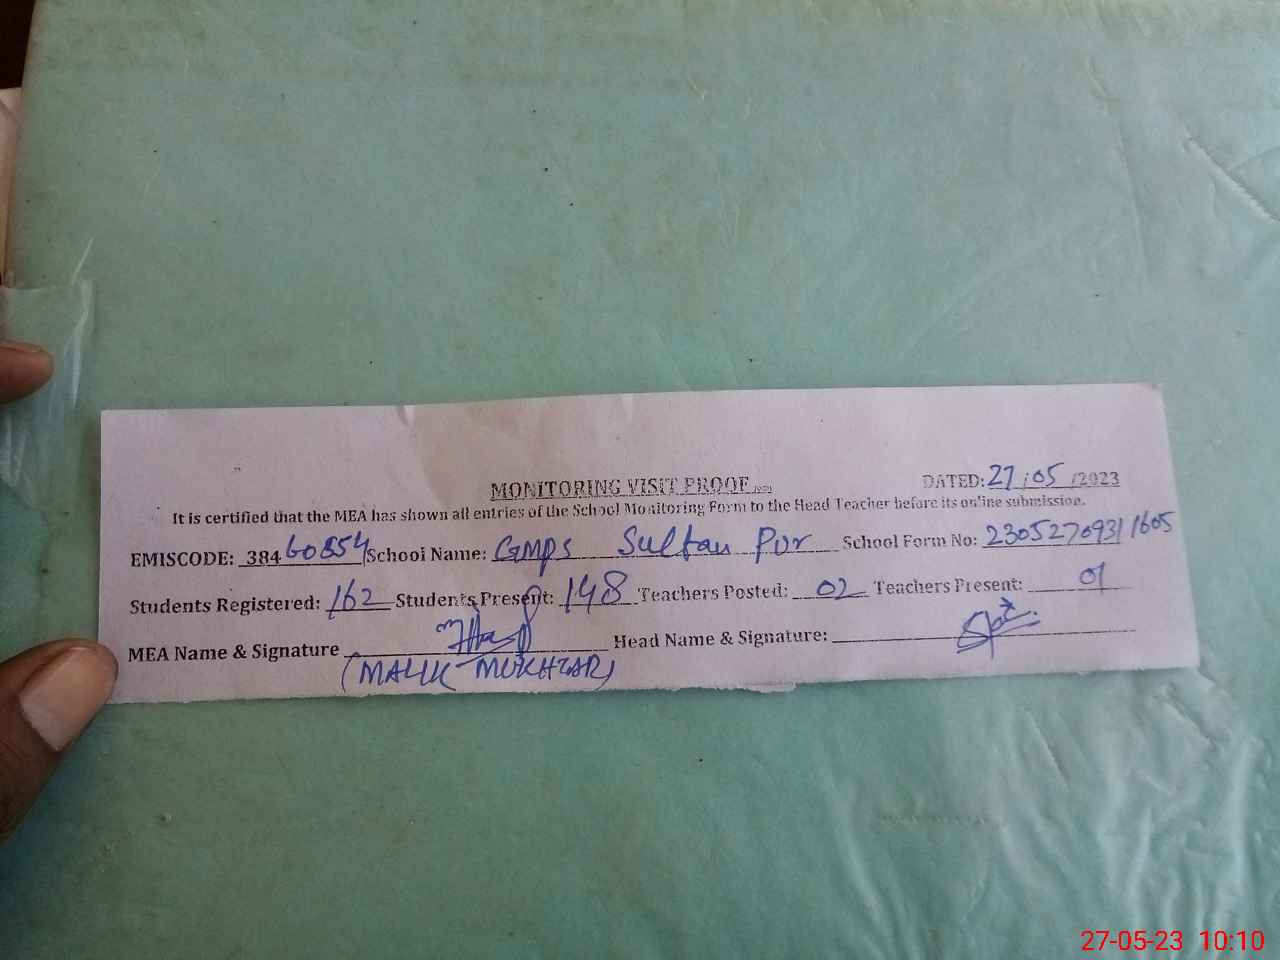 MONITORING VISIT PROOF DATED: 27/05/2023
It is certified that the MEA has shown all entries of the School Monitoring Form to the Head Teacher before its online submission.
EMISCODE: 38460854 School Name: GMPS Sultan Pur School Form No: 23052709311605
Students Registered: 162 Students Present: 148 Teachers Posted: 02 Teachers Present: 01
MEA Name & Signature Head Name & Signature:
(MALIK MUKHTAR)
27-05-23 10:10